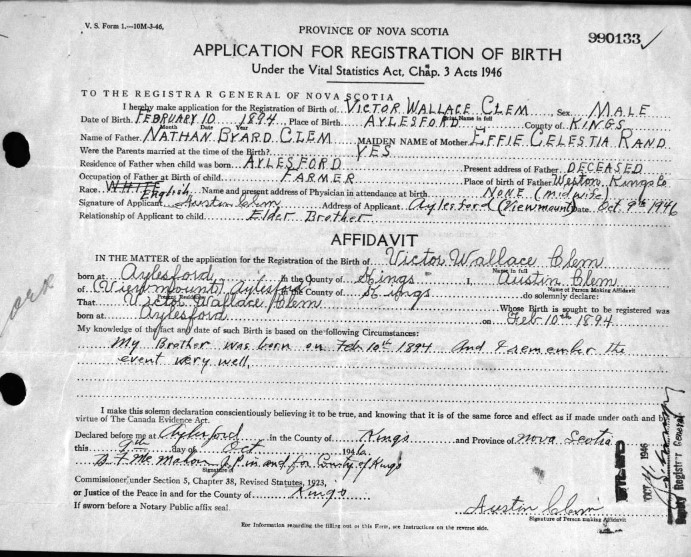 V. S. Form 1.—10M-3-46.
PROVINCE OF NOVA SCOTIA
990133
APPLICATION FOR REGISTRATION OF BIRTH
Under the Vital Statistics Act, Chap. 3 Acts 1946
TO THE REGISTRAR GENERAL OF NOVA SCOTIA
I hereby make application for the Registration of Birth of VICTOR WALLACE CLEM Sex MALE
Print Name in full
Date of Birth FEBRUARY 10 1894 Place of Birth AYLESFORD County of KINGS
Month Date Year
Name of Father NATHAN BYARD CLEM MAIDEN NAME of Mother EFFIE CELESTIA RAND
Were the Parents married at the time of the Birth? YES
Residence of Father when child was born AYLESFORD Present address of Father DECEASED
Occupation of Father at Birth of child FARMER Place of birth of Father Weston Kings Co
Race WHITE English Name and present address of Physician in attendance at birth NONE (Midwife)
Signature of Applicant Austin Clem Address of Applicant Aylesford (Viewmount) Date Oct 9th 1946
Relationship of Applicant to child Elder Brother
AFFIDAVIT
IN THE MATTER of the application for the Registration of the Birth of Victor Wallace Clem
Name in full
born at Aylesford in the County of Kings I, Austin Clem
Name of Person Making Affidavit
of (Viewmount) Aylesford in the County of Kings do solemnly declare:
Present Residence
That Victor Wallace Clem Whose Birth is sought to be registered was
born at Aylesford on Feb 10th 1894
My knowledge of the fact and date of such Birth is based on the following Circumstances:
My Brother was born on Feb 10th 1894 and I remember the
event very well,
I make this solemn declaration conscientiously believing it to be true, and knowing that it is of the same force and effect as if made under oath and by
virtue of The Canada Evidence Act.
Declared before me at Aylesford in the County of Kings and Province of Nova Scotia
this 9th day of Oct 1946
McMahon J.P. in and for County of Kings
Signature of
Commissioner under Section 5, Chapter 38, Revised Statutes, 1923,
or Justice of the Peace in and for the County of Kings
If sworn before a Notary Public affix seal.
Austin Clem
Signature of Person making Affidavit
OCT 1946
Deputy Registrar General
For Information regarding the filling out of this Form, see Instructions on the reverse side.